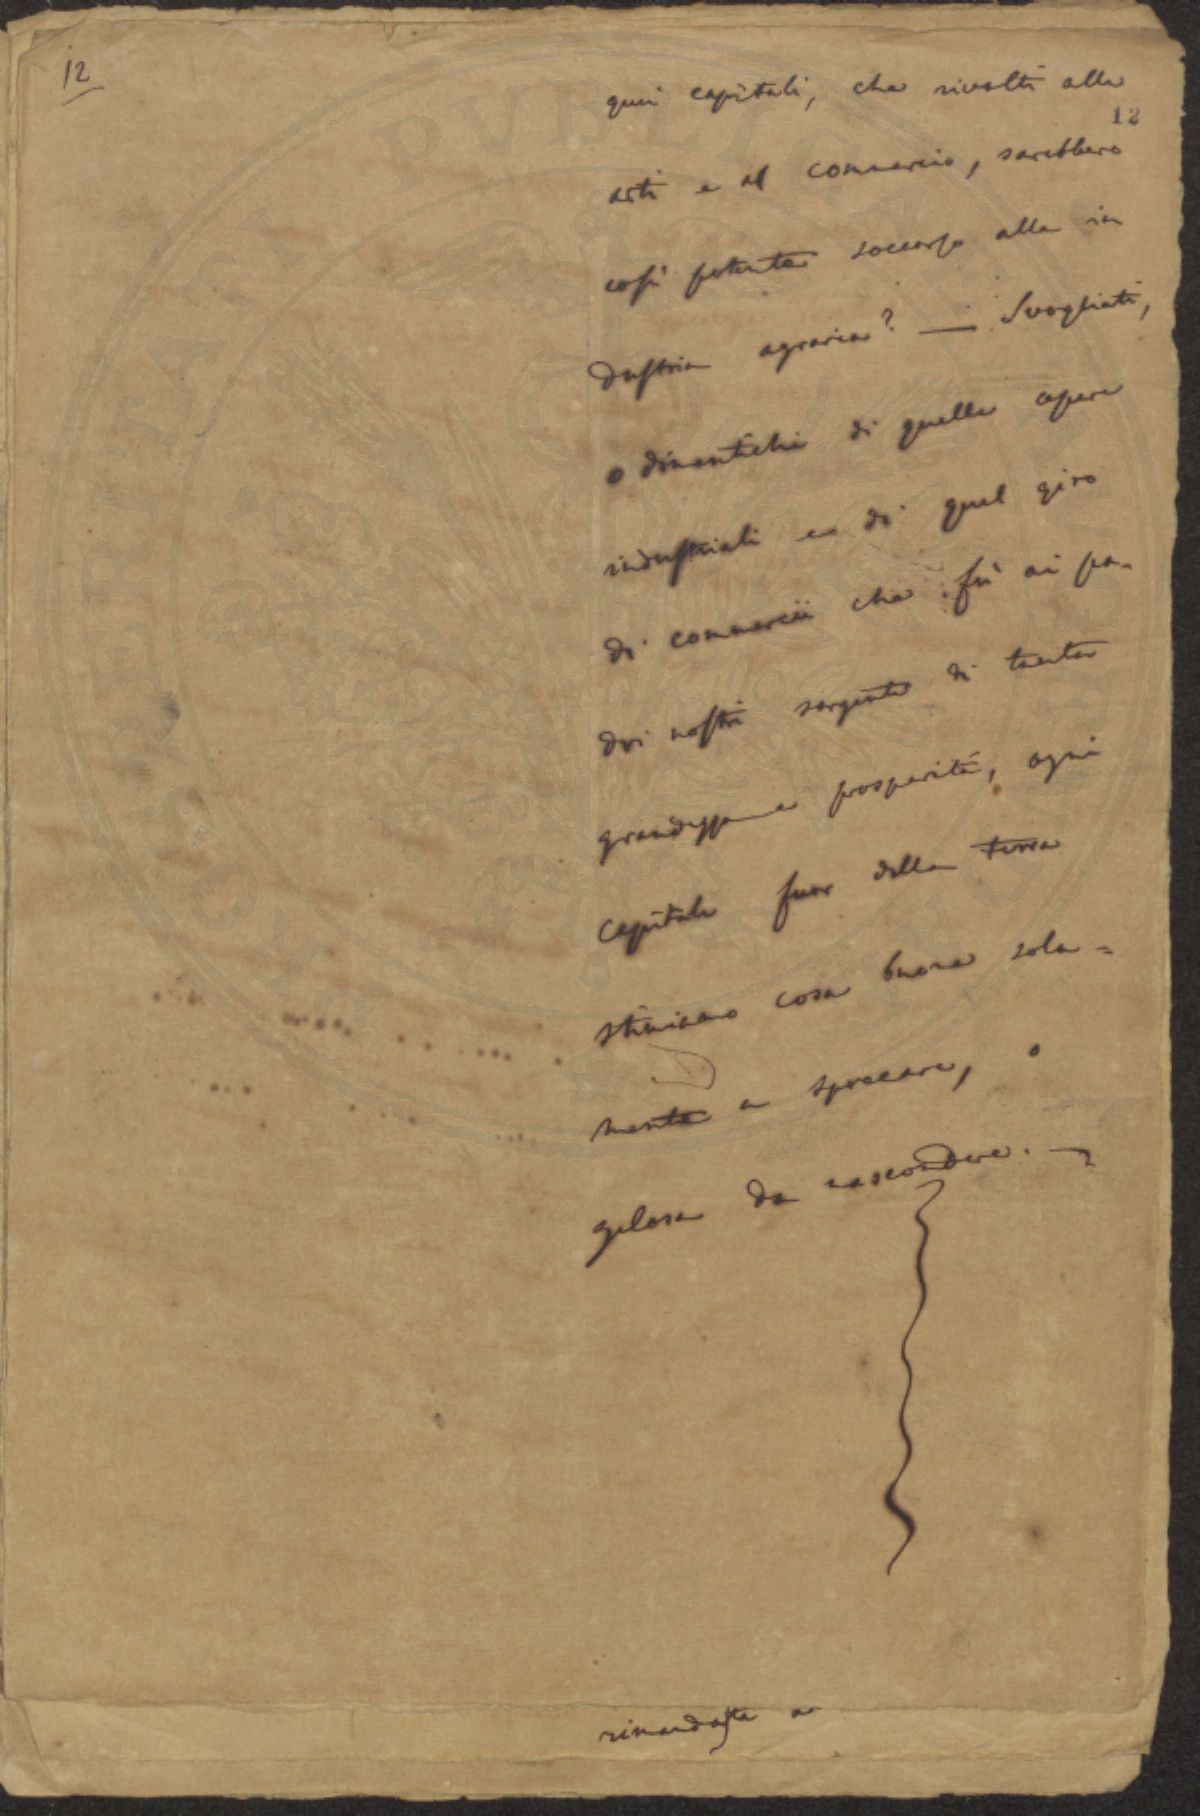 12
quei capitali, che rivolti alle
12
arti e al commercio, sarebbero
così potente soccorso alla in
dustria agraria? — Svogliati,
o dimentichi di quelle opere
industriali e di quel giro
di commercii che fù ai pa-
dri nostri sorgente di tanta
grandezza e prosperità, ogni
capitale fuor della terra
stimiamo cosa buona sola=
mente a sprecare, o
gelosa da nascondere. —
rimandasta a